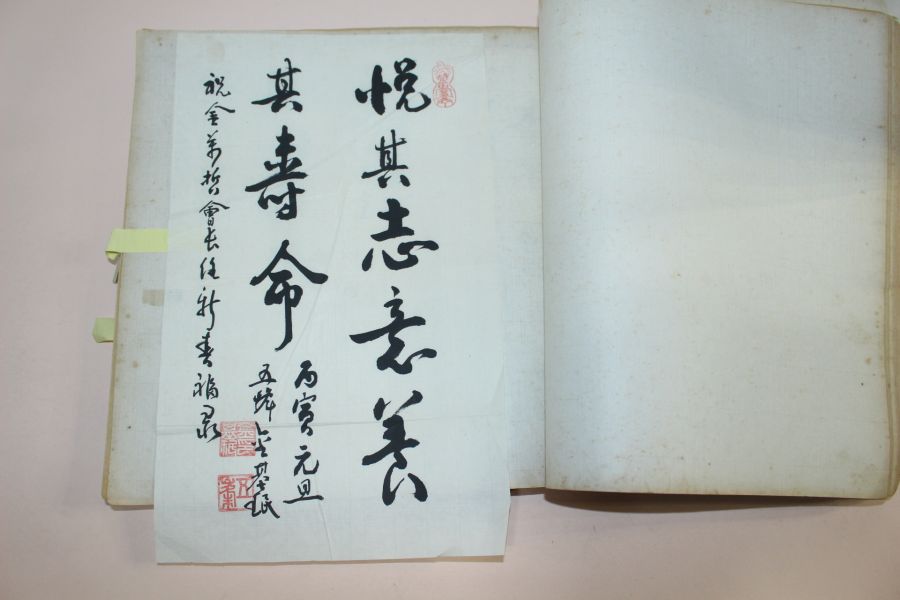 悅其志意養
其壽命
丙寅元旦
五 金基
祝金萬哲會長任新春福